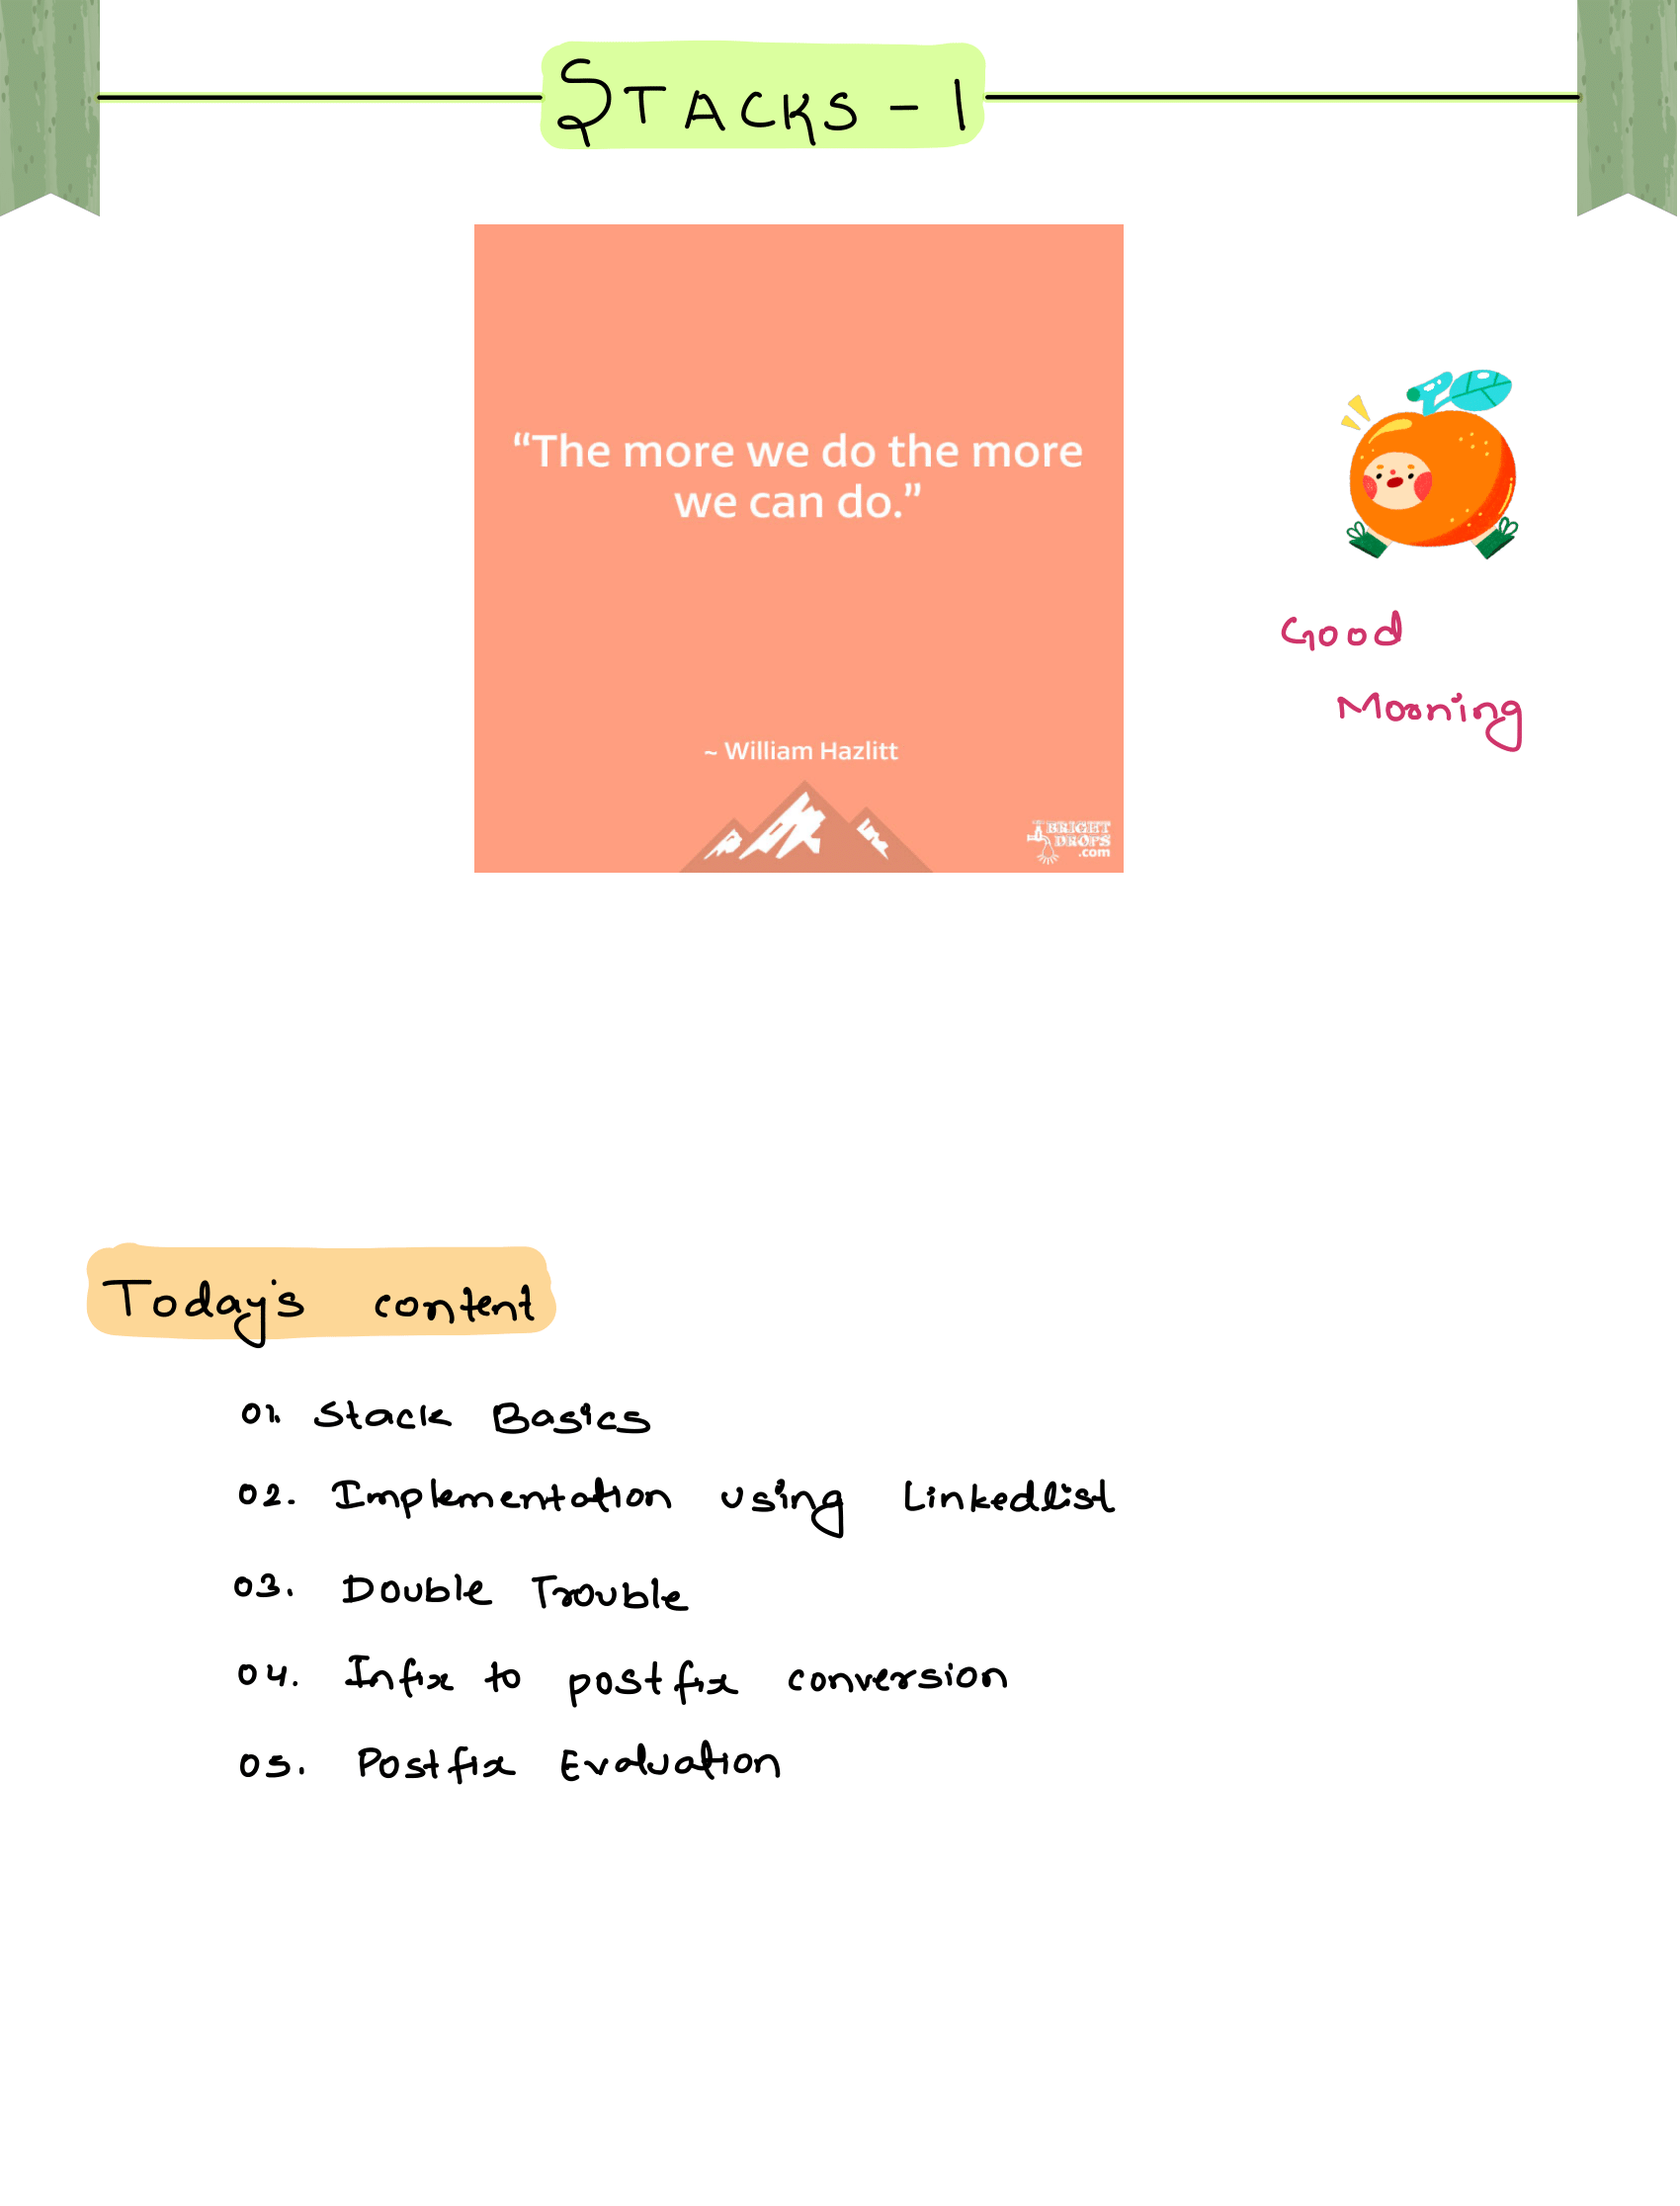 STACKS - 1
“The more we do the more
we can do.”
~ William Hazlitt
BRIGHT
DROPS
.com
Good
Morning
Today's content
01. Stack Basics
02. Implementation using Linkedlist
03. Double Trouble
04. Infix to postfix conversion
05. Postfix Evaluation